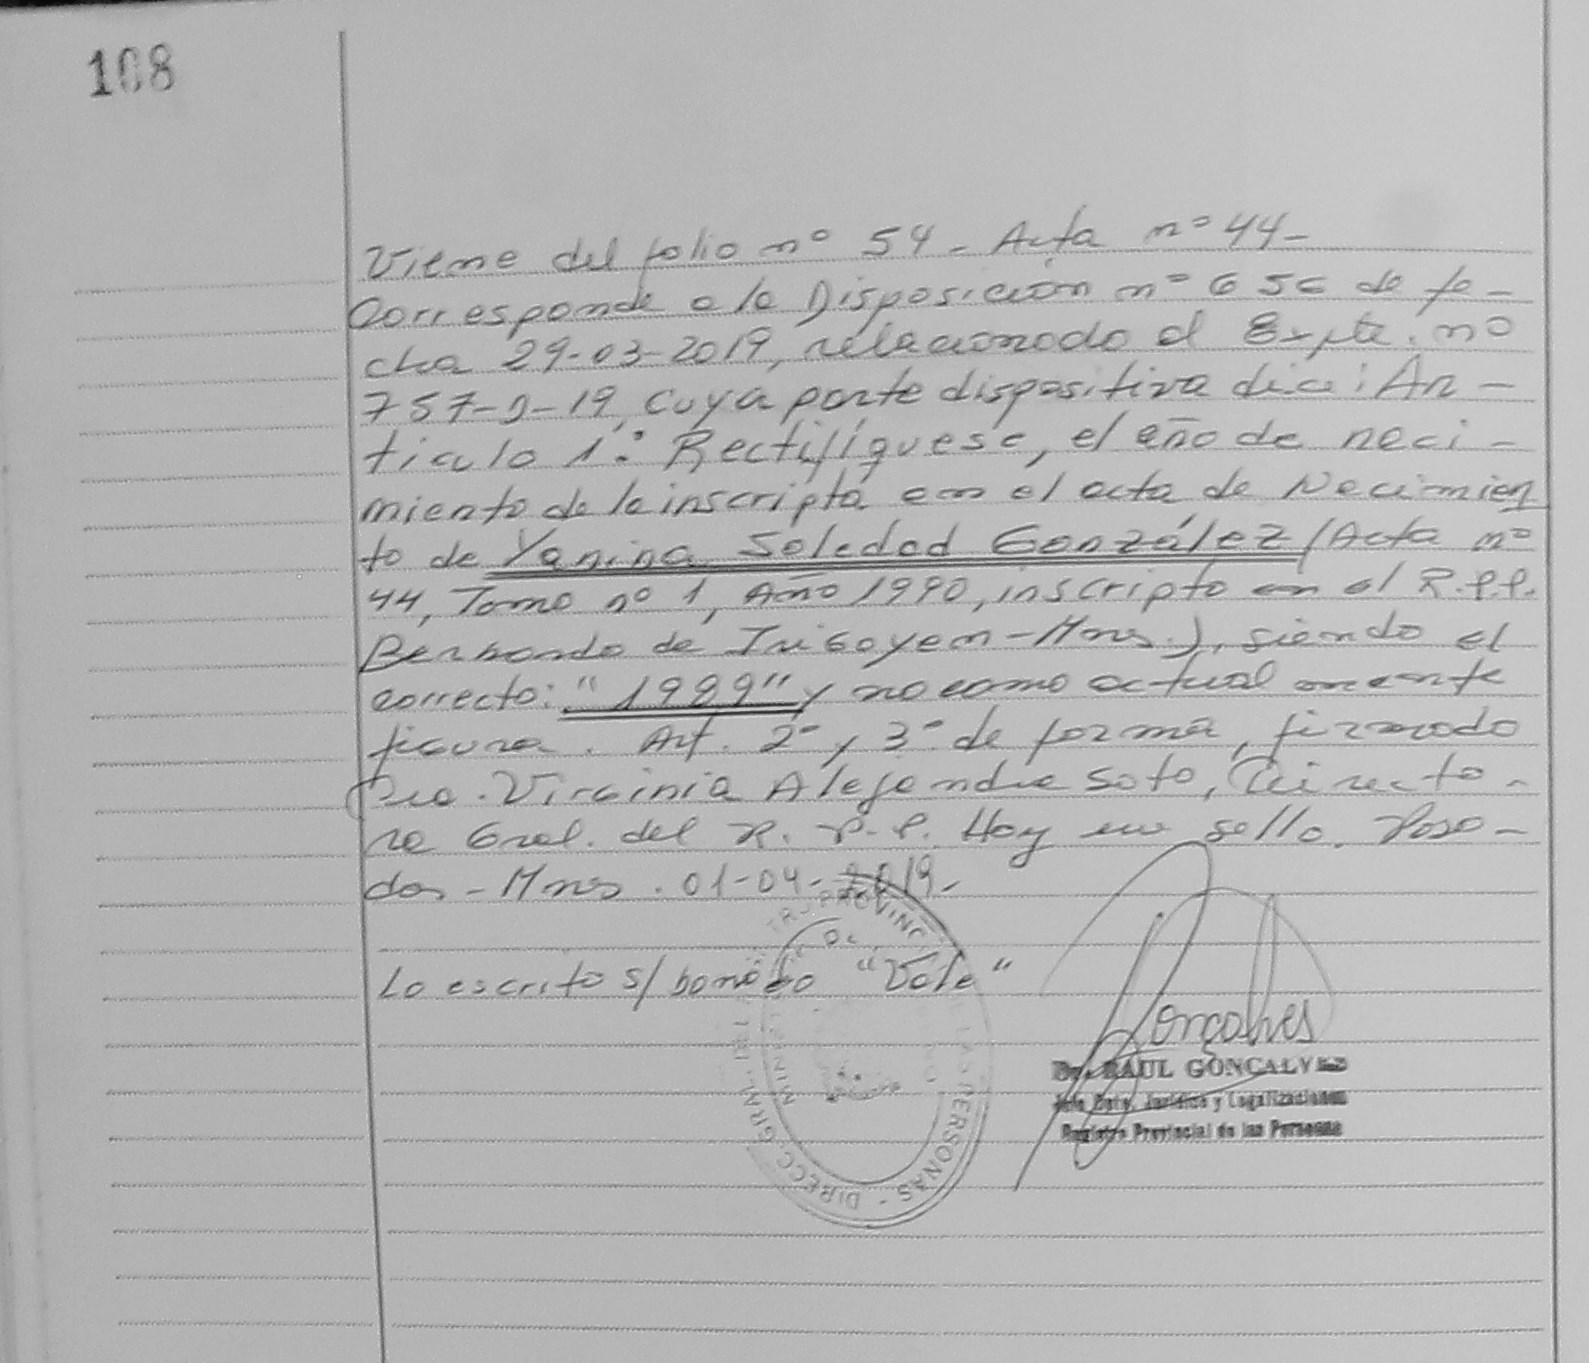 108
Viene del folio nº 54 - Acta nº 44 -
Corresponde a la Disposición nº 656 de fe-
cha 29-03-2019, relacionado al Expte. nº
757-J-19, cuya parte dispositiva dice: Ar-
tículo 1º: Rectifíquese, el año de naci-
miento de la inscripta en el acta de Nacimien
to de Yanina Soledad González (Acta nº
44, Tomo nº 1, Año 1990, inscripto en el R.P.P.
Bernardo de Irigoyen - Mnes.), siendo el
correcto: "1989" y no como actual mente
figura. Art. 2º y 3º de forma, firmado
Dra. Virginia Alejandra Soto, Directo-
ra Gral. del R.P.P. Hay un sello. Posa-
das - Mnes. 01-04-2019.-
Lo escrito s/ borrado "Vale"
Gonçalves
Dr. RAUL GONCALVES
Jefe Dpto. Jurídico y Legalizaciones
Registro Provincial de las Personas
DIRECC. GRAL. DEL PROVINC DE LAS PERSONAS -